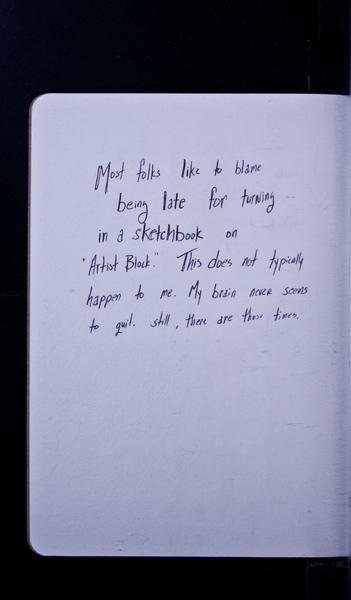 Most folks like to blame
being late for turning
in a sketchbook on
"Artist Block." This does not typically
happen to me. My brain never seems
to quit. still, there are those times.